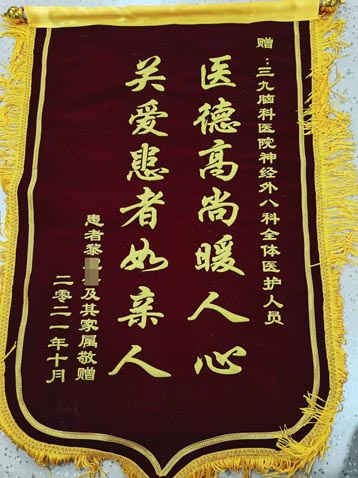 赠：三九脑科医院神经外八科全体医护人员
医德高尚暖人心
关爱患者如亲人
患者黎及其家属敬赠
二零二一年十月